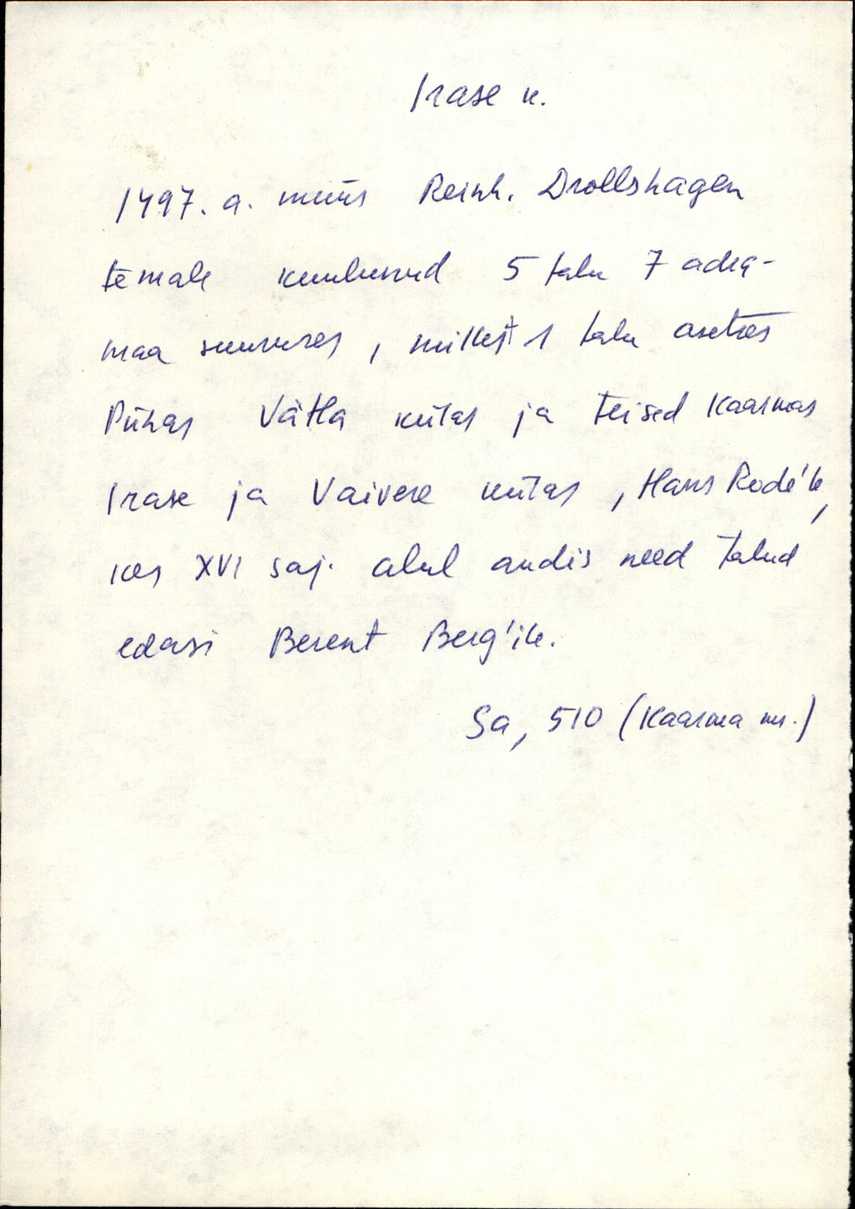 Irase k.
1497. a. müüs Reinh. Drollshagen
temale kuulunud 5 talu 7 adra-
maa suuruses, millest 1 talu asetses
Pühas Vätta külas ja teised Kaarmas
Irase ja Vaivere külas, Hans Rode'le,
kes XVI saj. alul andis need talud
edasi Berent Berg'ile.
Sa, 510 (Kaarma mr.)